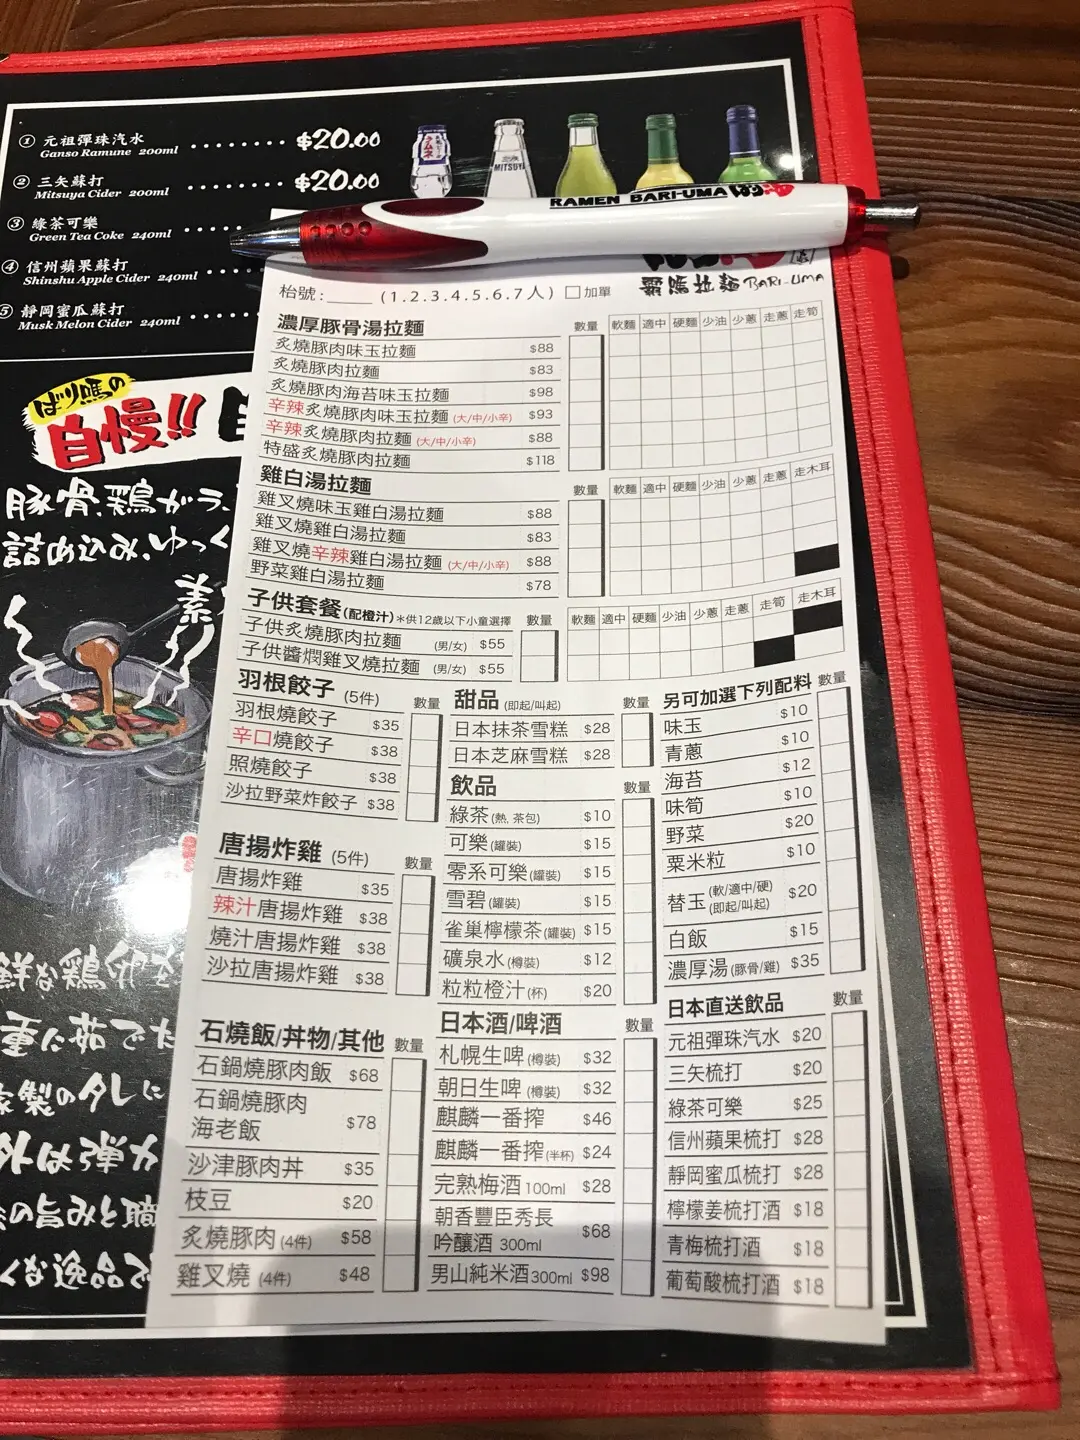 ① 元祖彈珠汽水 ........ $20.00
Ganso Ramune 200ml
② 三矢蘇打 ........ $20.00
Mitsuya Cider 200ml
③ 綠茶可樂
Green Tea Coke 240ml
④ 信州蘋果蘇打
Shinshu Apple Cider 240ml
⑤ 靜岡蜜瓜蘇打
Musk Melon Cider 240ml
MITSUYA
RAMEN BARI-UMA ばり馬
ばり嗎の
自慢!!
豚骨、鶏ガラ、
詰め込み、ゆっく
覇嗎拉麵 BARI-UMA
枱號:____ (1.2.3.4.5.6.7人) □加單
濃厚豚骨湯拉麵 數量 軟麵 適中 硬麵 少油 少蔥 走蔥 走筍
炙燒豚肉味玉拉麵 $88
炙燒豚肉拉麵 $83
炙燒豚肉海苔味玉拉麵 $98
辛辣炙燒豚肉味玉拉麵 (大/中/小辛) $93
辛辣炙燒豚肉拉麵 (大/中/小辛) $88
特盛炙燒豚肉拉麵 $118
雞白湯拉麵 數量 軟麵 適中 硬麵 少油 少蔥 走蔥 走木耳
雞叉燒味玉雞白湯拉麵 $88
雞叉燒雞白湯拉麵 $83
雞叉燒辛辣雞白湯拉麵 (大/中/小辛) $88
野菜雞白湯拉麵 $78
子供套餐(配橙汁) *供12歲以下小童選擇 數量 軟麵 適中 硬麵 少油 少蔥 走蔥 走筍 走木耳
子供炙燒豚肉拉麵 (男/女) $55
子供醬燜雞叉燒拉麵 (男/女) $55
羽根餃子 (5件) 數量
羽根燒餃子 $35
辛口燒餃子 $38
照燒餃子 $38
沙拉野菜炸餃子 $38
唐揚炸雞 (5件) 數量
唐揚炸雞 $35
辣汁唐揚炸雞 $38
燒汁唐揚炸雞 $38
沙拉唐揚炸雞 $38
石燒飯/丼物/其他 數量
石鍋燒豚肉飯 $68
石鍋燒豚肉
海老飯 $78
沙津豚肉丼 $35
枝豆 $20
炙燒豚肉 (4件) $58
雞叉燒 (4件) $48
甜品 (即起/叫起) 數量
日本抹茶雪糕 $28
日本芝麻雪糕 $28
飲品 數量
綠茶(熱, 茶包) $10
可樂(罐裝) $15
零系可樂(罐裝) $15
雪碧(罐裝) $15
雀巢檸檬茶(罐裝) $15
礦泉水(樽裝) $12
粒粒橙汁(杯) $20
日本酒/啤酒 數量
札幌生啤(樽裝) $32
朝日生啤(樽裝) $32
麒麟一番搾 $46
麒麟一番搾(半杯) $24
完熟梅酒 100ml $28
朝香豐臣秀長
吟釀酒 300ml $68
男山純米酒300ml $98
另可加選下列配料 數量
味玉 $10
青蔥 $10
海苔 $12
味筍 $10
野菜 $20
粟米粒 $10
替玉 (軟/適中/硬) (即起/叫起) $20
白飯 $15
濃厚湯(豚骨/雞) $35
日本直送飲品 數量
元祖彈珠汽水 $20
三矢梳打 $20
綠茶可樂 $25
信州蘋果梳打 $28
靜岡蜜瓜梳打 $28
檸檬姜梳打酒 $18
青梅梳打酒 $18
葡萄酸梳打酒 $18